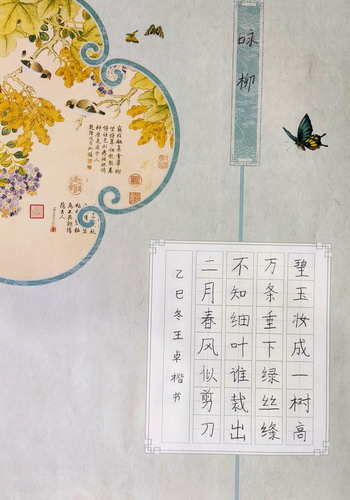 咏柳
碧玉妆成一树高
万条垂下绿丝绦
不知细叶谁裁出
二月春风似剪刀
乙巳冬王卓楷书